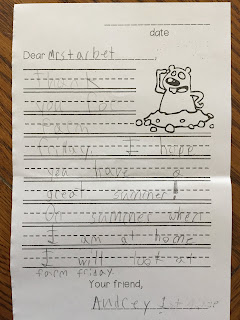 date
Dear Mrstarbet,
Thank
you for
farm
friday. I hope
you have a
great summer!
On summer when
I am at home
I will look at
farm friday.
Your friend,
Audrey